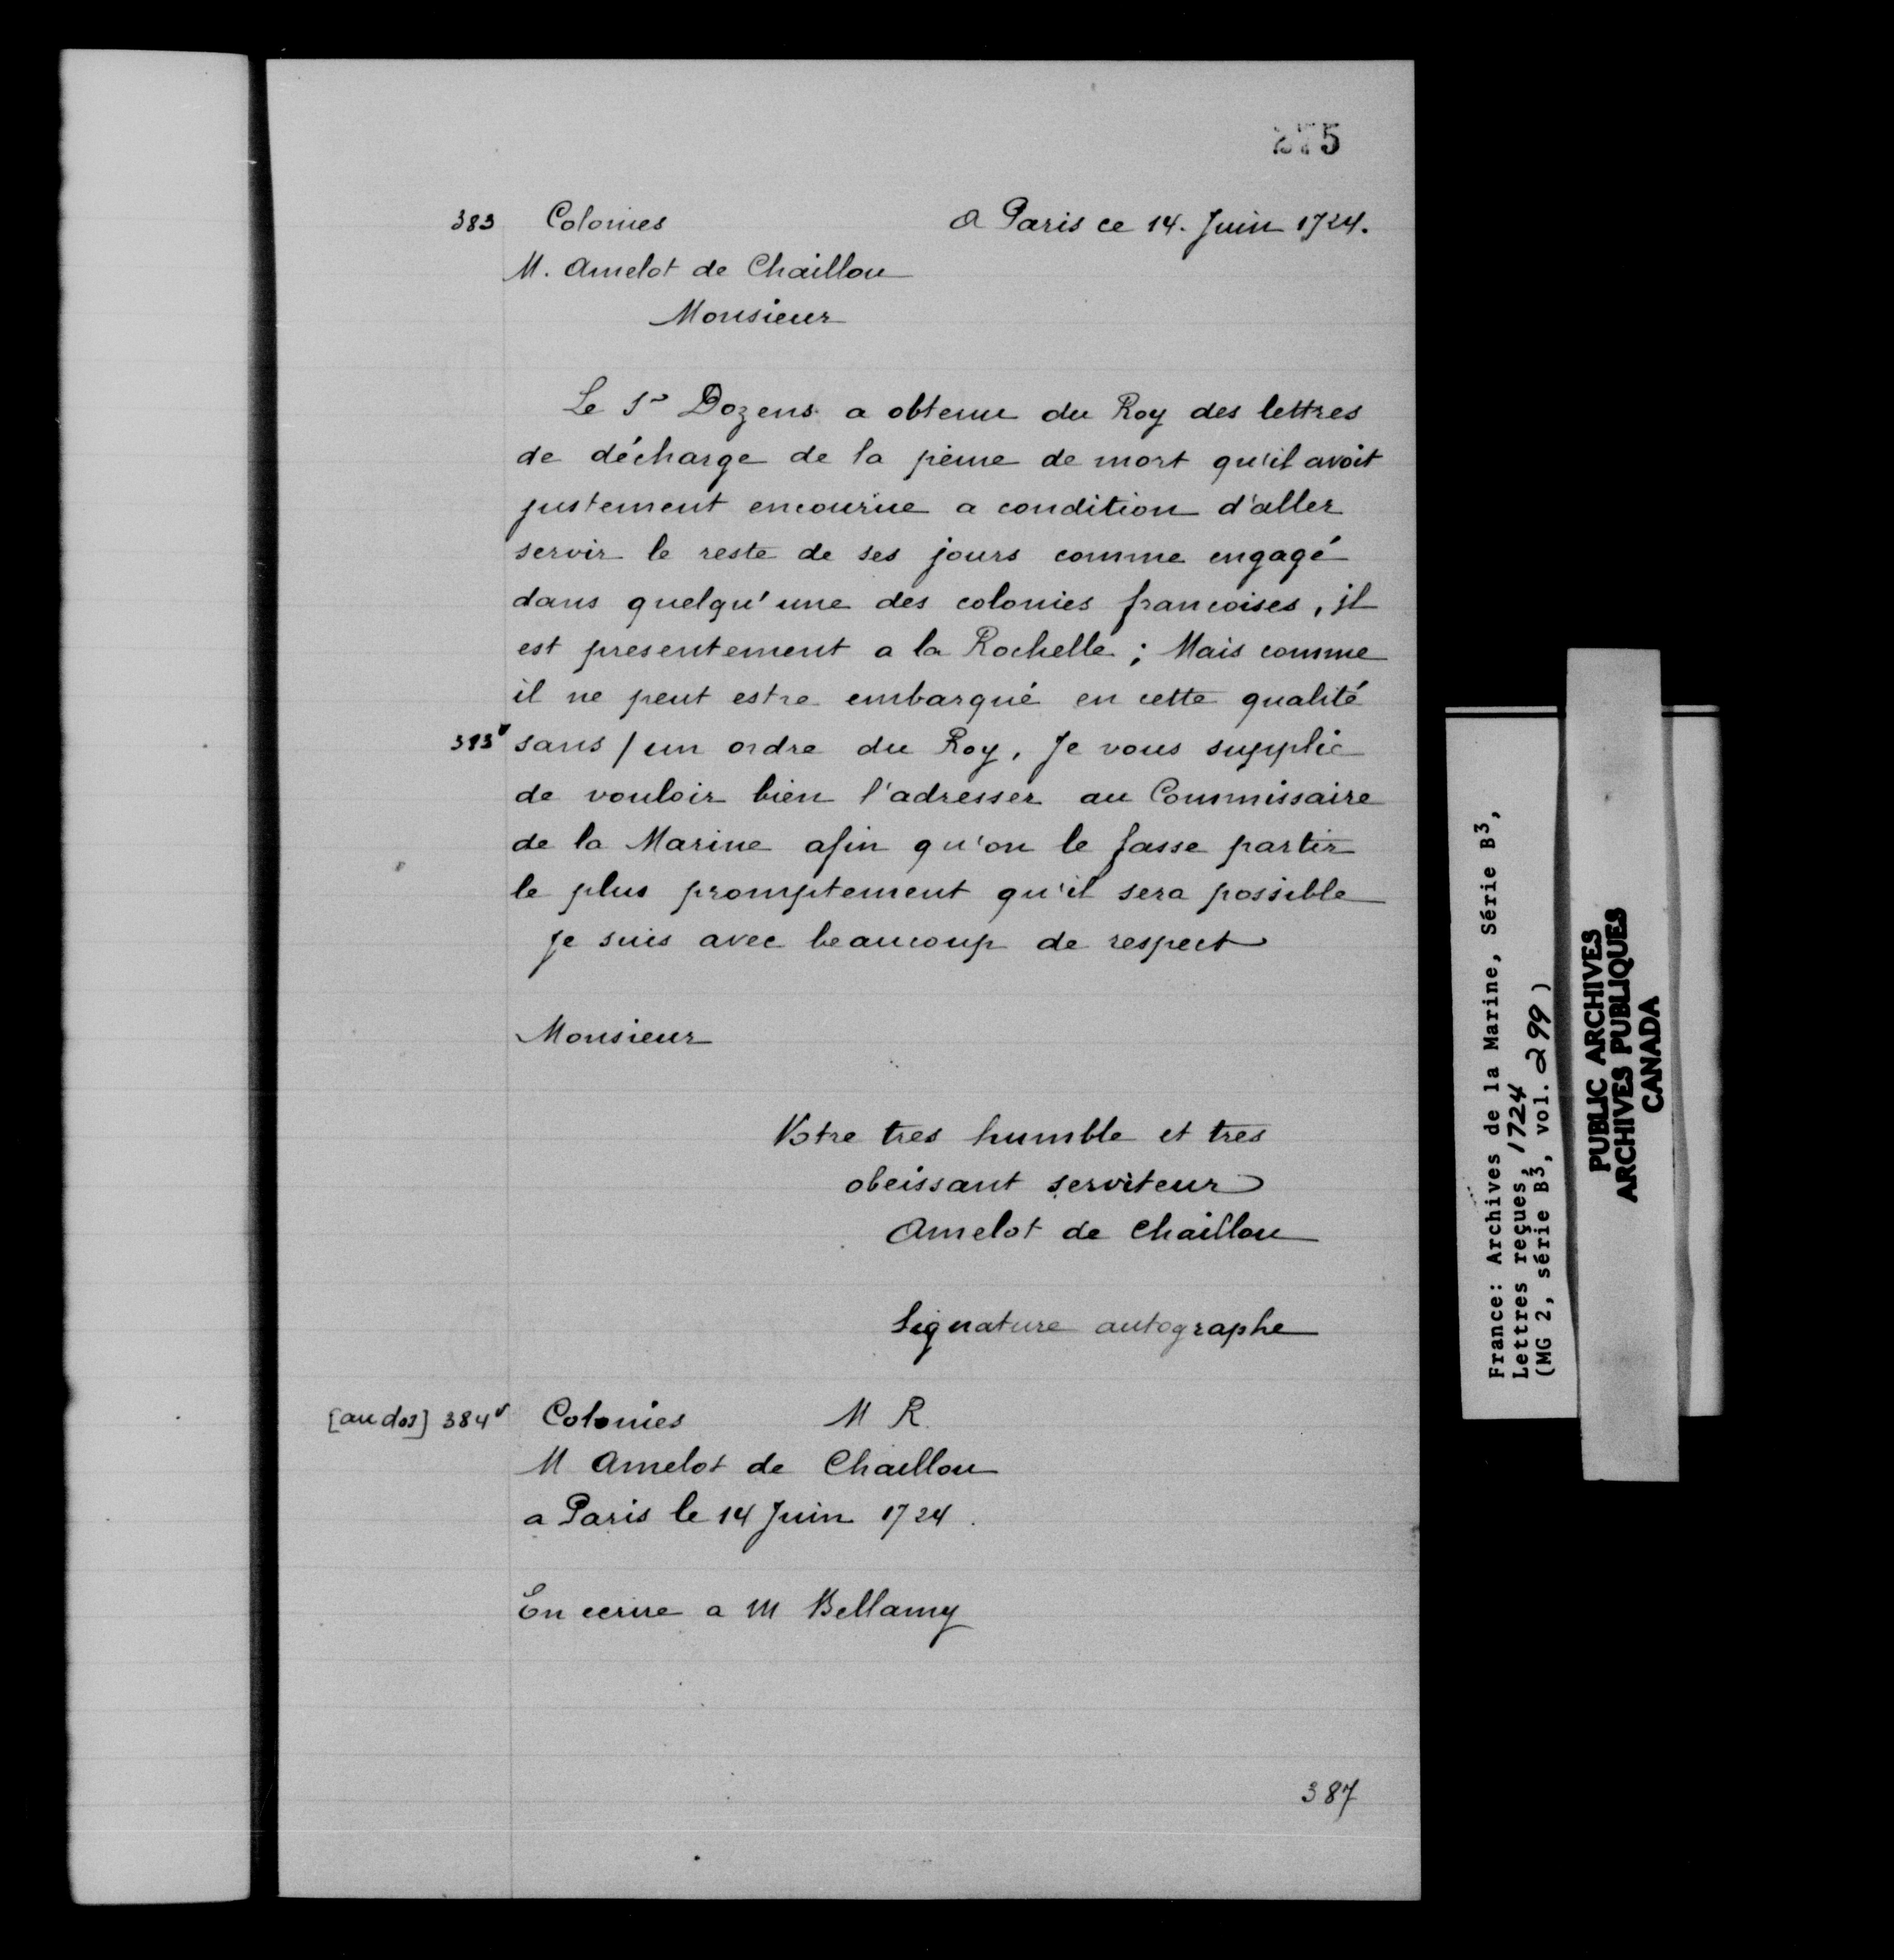 375
383 Colonies A Paris ce 14. Juin 1724.
M. Amelot de Chaillou
Monsieur
Le Sr Dozens a obtenu du Roy des lettres
de décharge de la peine de mort qu'il avoit
justement encourüe a condition d'aller
servir le reste de ses jours comme engagé
dans quelqu'une des colonies francoises, il
est presentement a la Rochelle ; Mais comme
il ne peut estre embarqué en cette qualité
383v sans / un ordre du Roy, Je vous supplie
de vouloir bien l'adresser au Commissaire
de la Marine afin qu'on le fasse partir
le plus promptement qu'il sera possible
Je suis avec beaucoup de respect
Monsieur
Votre tres humble et tres
obeissant serviteur
Amelot de Chaillou
Signature autographe
[au dos] 384v Colonies M R.
M Amelot de Chaillou
a Paris le 14 Juin 1724.
En ecrire a M Bellamy
387
France: Archives de la Marine, Série B3,
Lettres reçues, 1724
(MG 2, série B3, vol. 299)
PUBLIC ARCHIVES
ARCHIVES PUBLIQUES
CANADA